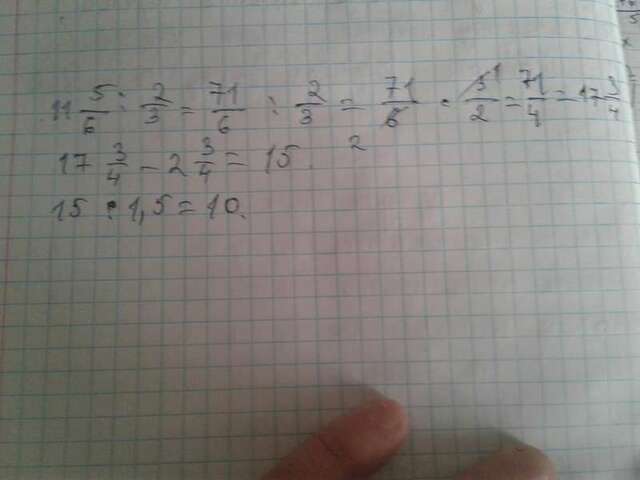 11 5/6 : 2/3 = 71/6 : 2/3 = 71/6 2 · 3/2 1 = 71/4 = 17 3/4
17 3/4 - 2 3/4 = 15
15 : 1,5 = 10.